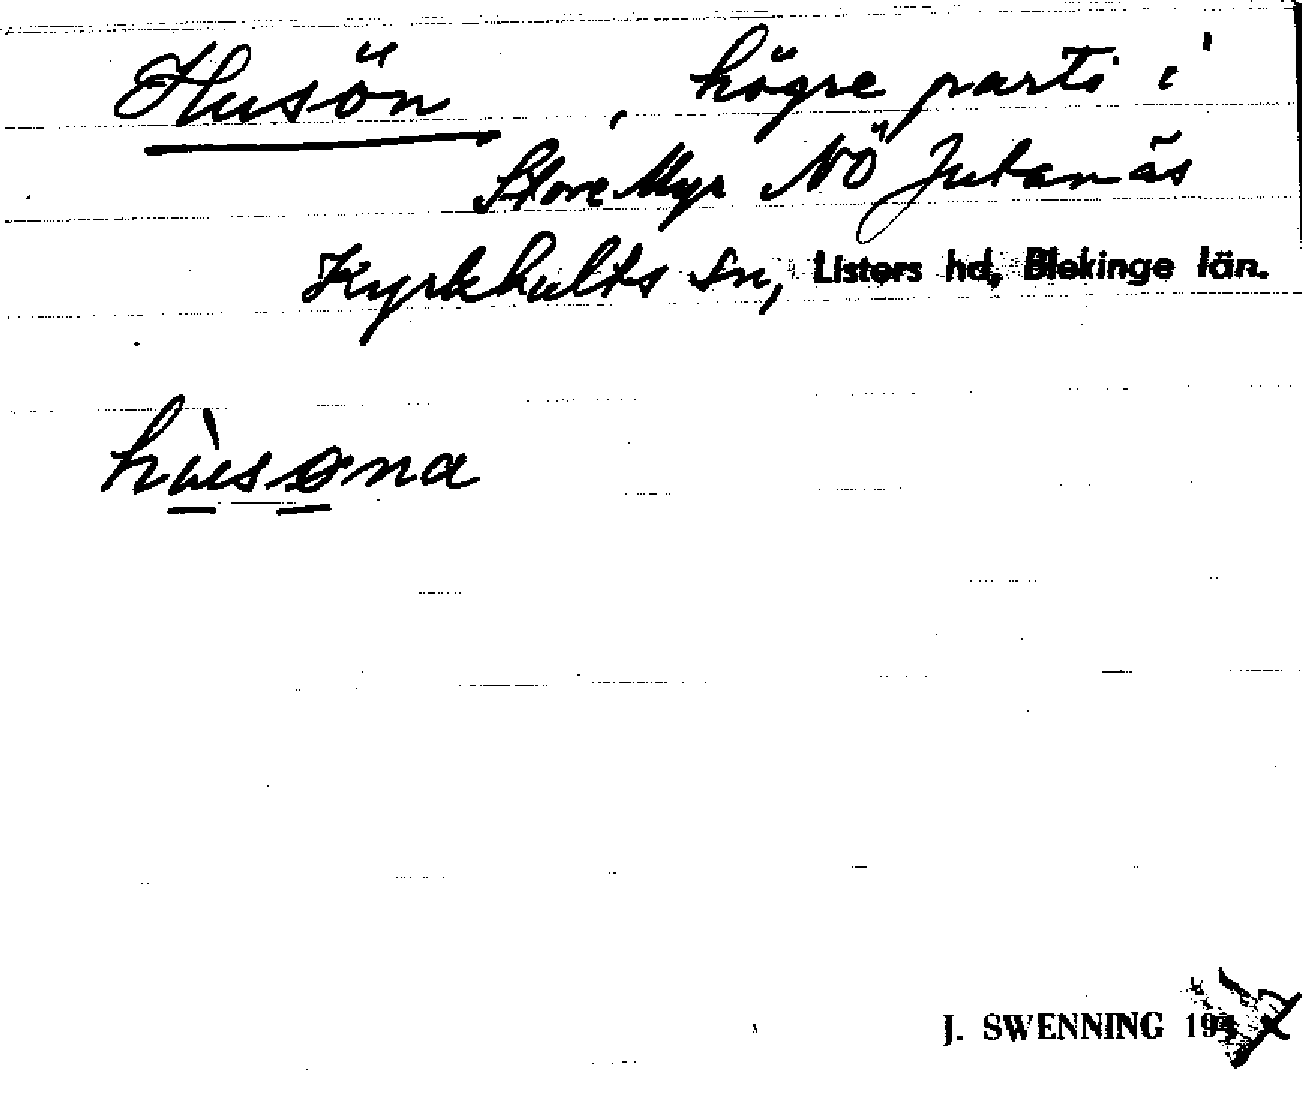 Husön, högre parti i
Store Myr NÖ Jutanäs
Kyrkhults sn, Listers hd, Blekinge län.
hùsøna
J. SWENNING